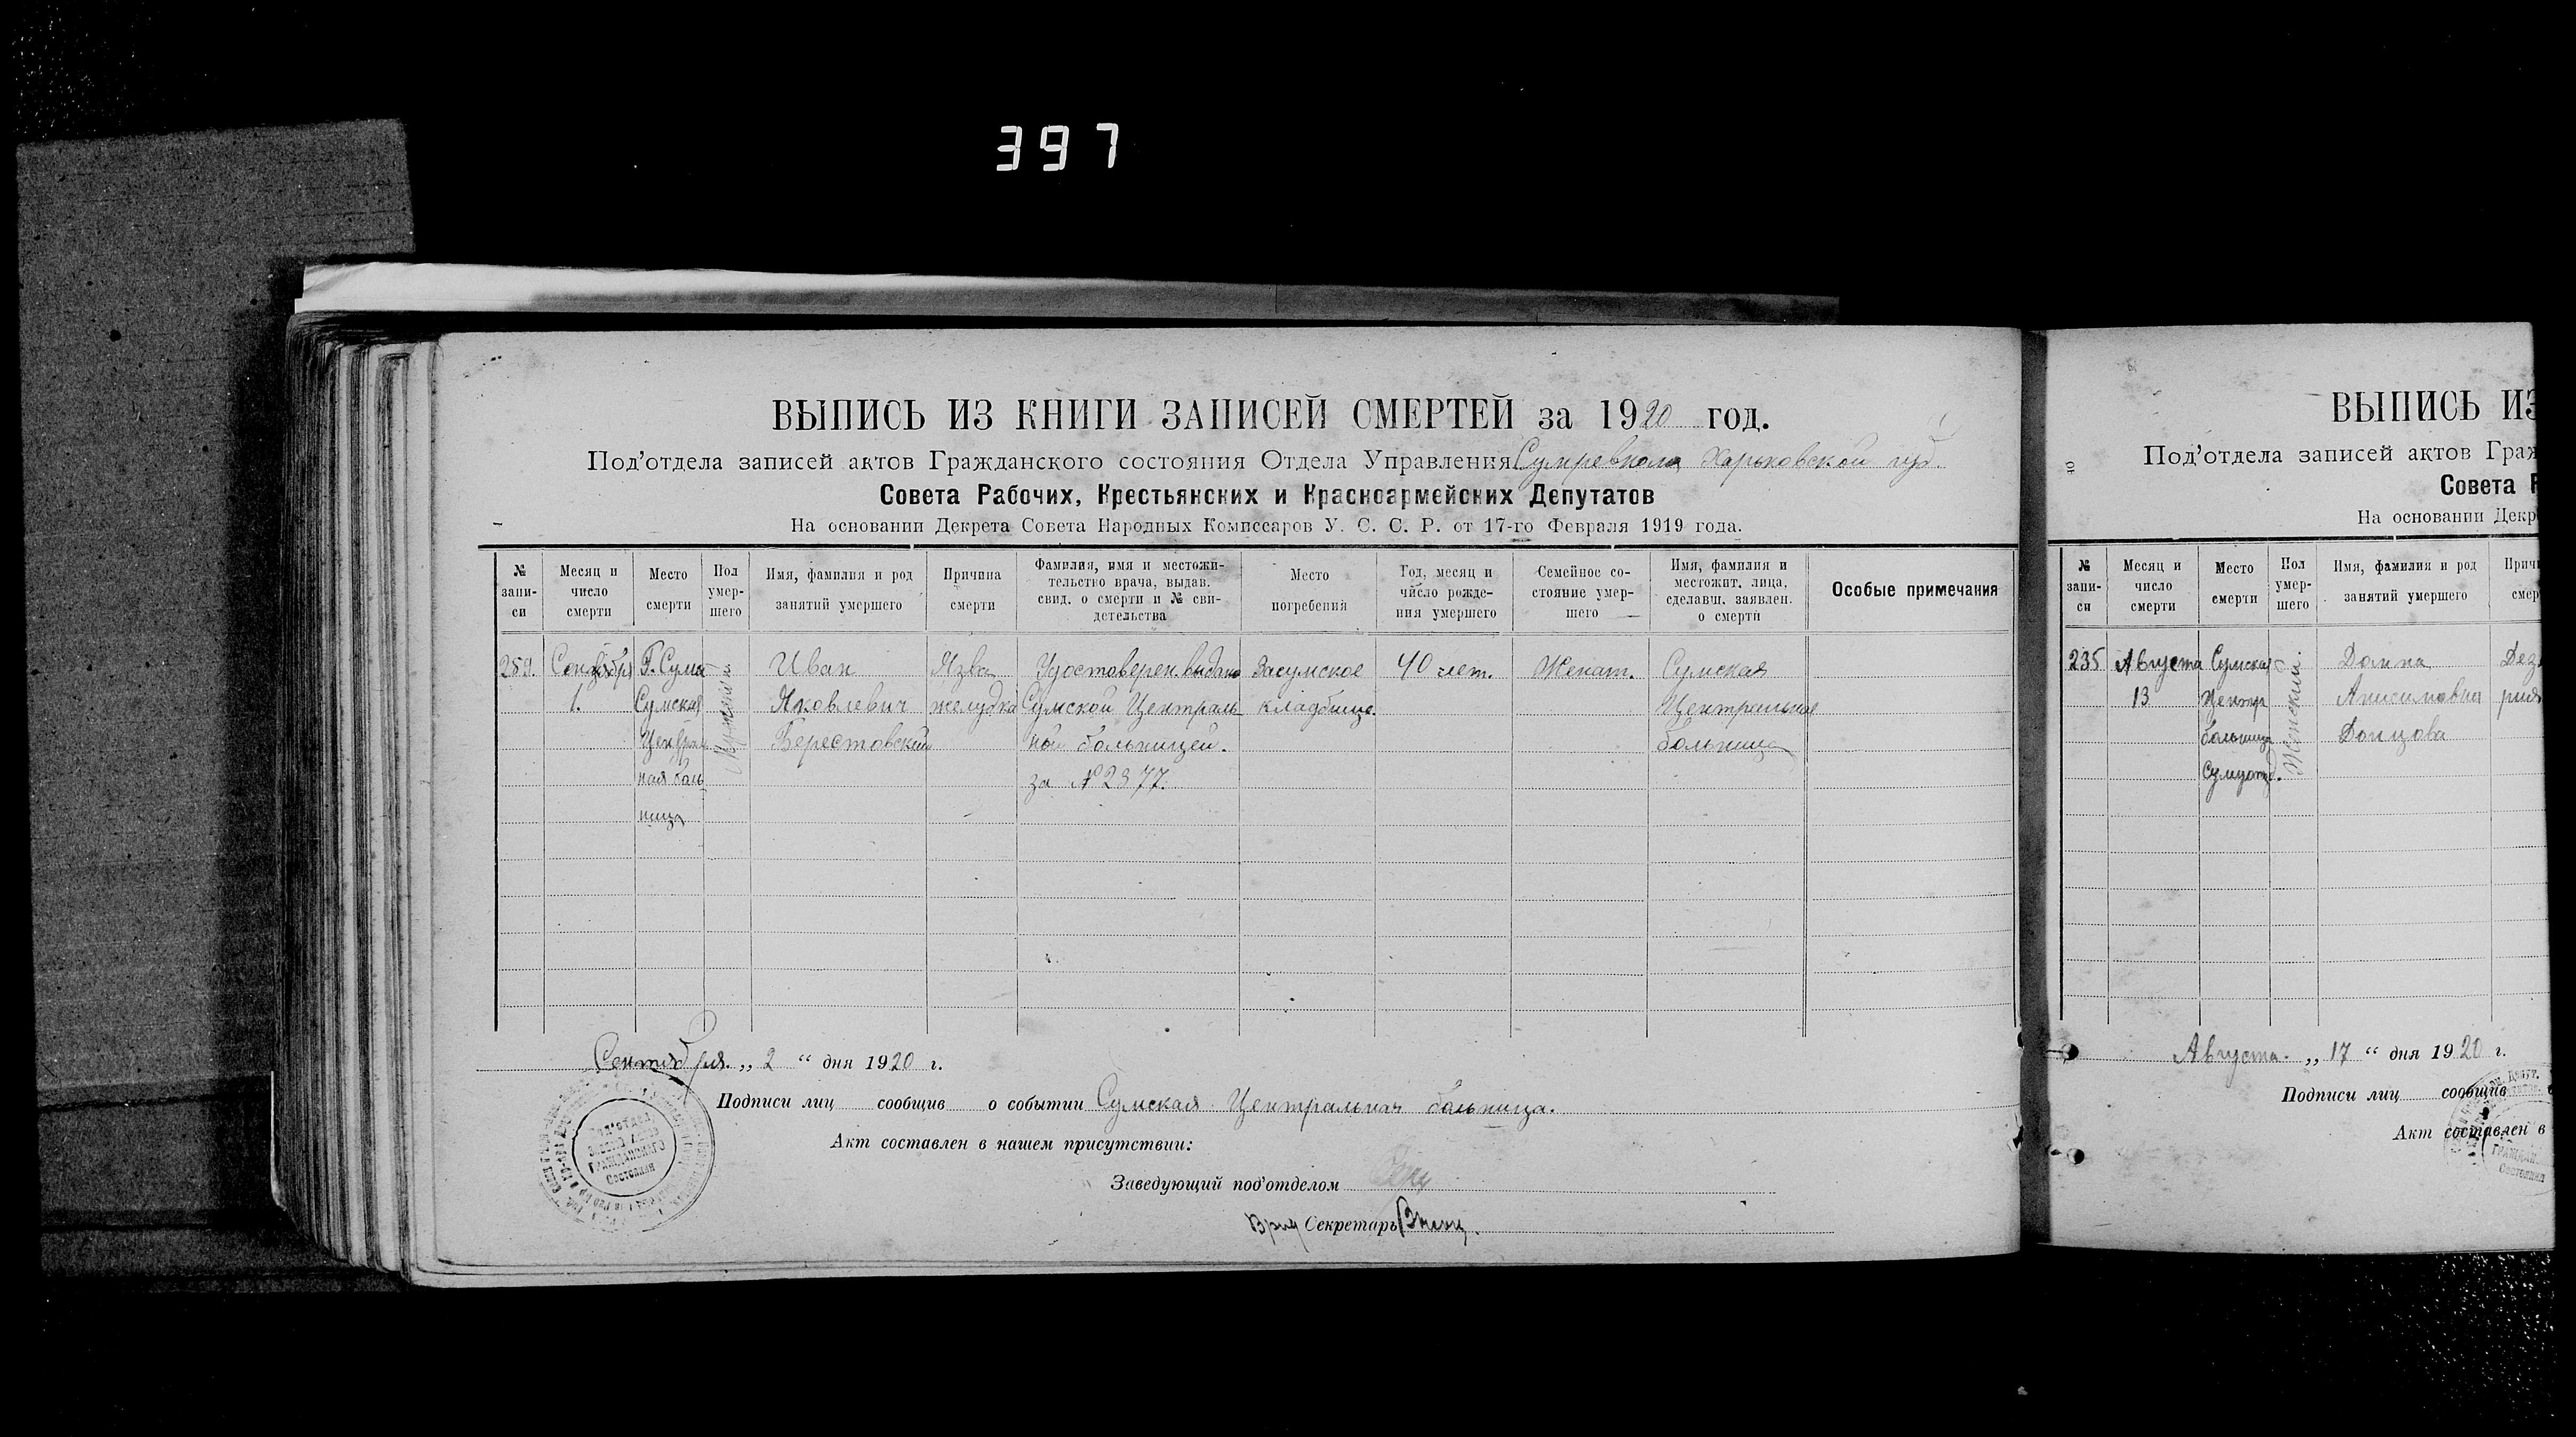 397
ВЫПИСЬ ИЗ КНИГИ ЗАПИСЕЙ СМЕРТЕЙ за 1920 год.
Под'отдела записей актов Гражданского состояния Отдела Управления Сумревкома Харьковской губ.
Совета Рабочих, Крестьянских и Красноармейских Депутатов
На основании Декрета Совета Народных Комиссаров У. С. С. Р. от 17-го Февраля 1919 года.
№ записи
Месяц и число смерти
Место смерти
Пол умершего
Имя, фамилия и род занятий умершего
Причина смерти
Фамилия, имя и местожительство врача, выдав. свид. о смерти и № свидетельства
Место погребения
Год, месяц и число рождения умершего
Семейное состояние умершего
Имя, фамилия и местожит. лица, сделавш. заявлен. о смерти
Особые примечания
259. Сентября Г. Сумы Мужской Иван Язва Удостоверен. выдано Засумское 40 лет. Женат. Сумская
1. Сумская Яковлевич желудка Сумской Централь- кладбище. Центральная
Централь Берестовский ной больницей. больница
ная боль за № 2377.
ница
Сентября „ 2 “ дня 1920 г.
Подписи лиц сообщив о событии Сумская Центральная больница.
Акт составлен в нашем присутствии:
Заведующий под'отделом
Врид Секретарь
Под'отдел
Гражданского
Состояния
ВЫПИСЬ ИЗ
Под'отдела записей актов Граж
Совета Р
На основании Декр
№ записи
Месяц и число смерти
Место смерти
Пол умершего
Имя, фамилия и род занятий умершего
Причи
смер
235 Августа Сумская Женский. Домна Дез
13 Центр Анисимовна рия
больница Донцова
Августа. „ 17 “ дня 1920 г.
Подписи лиц сообщив
Акт составлен в